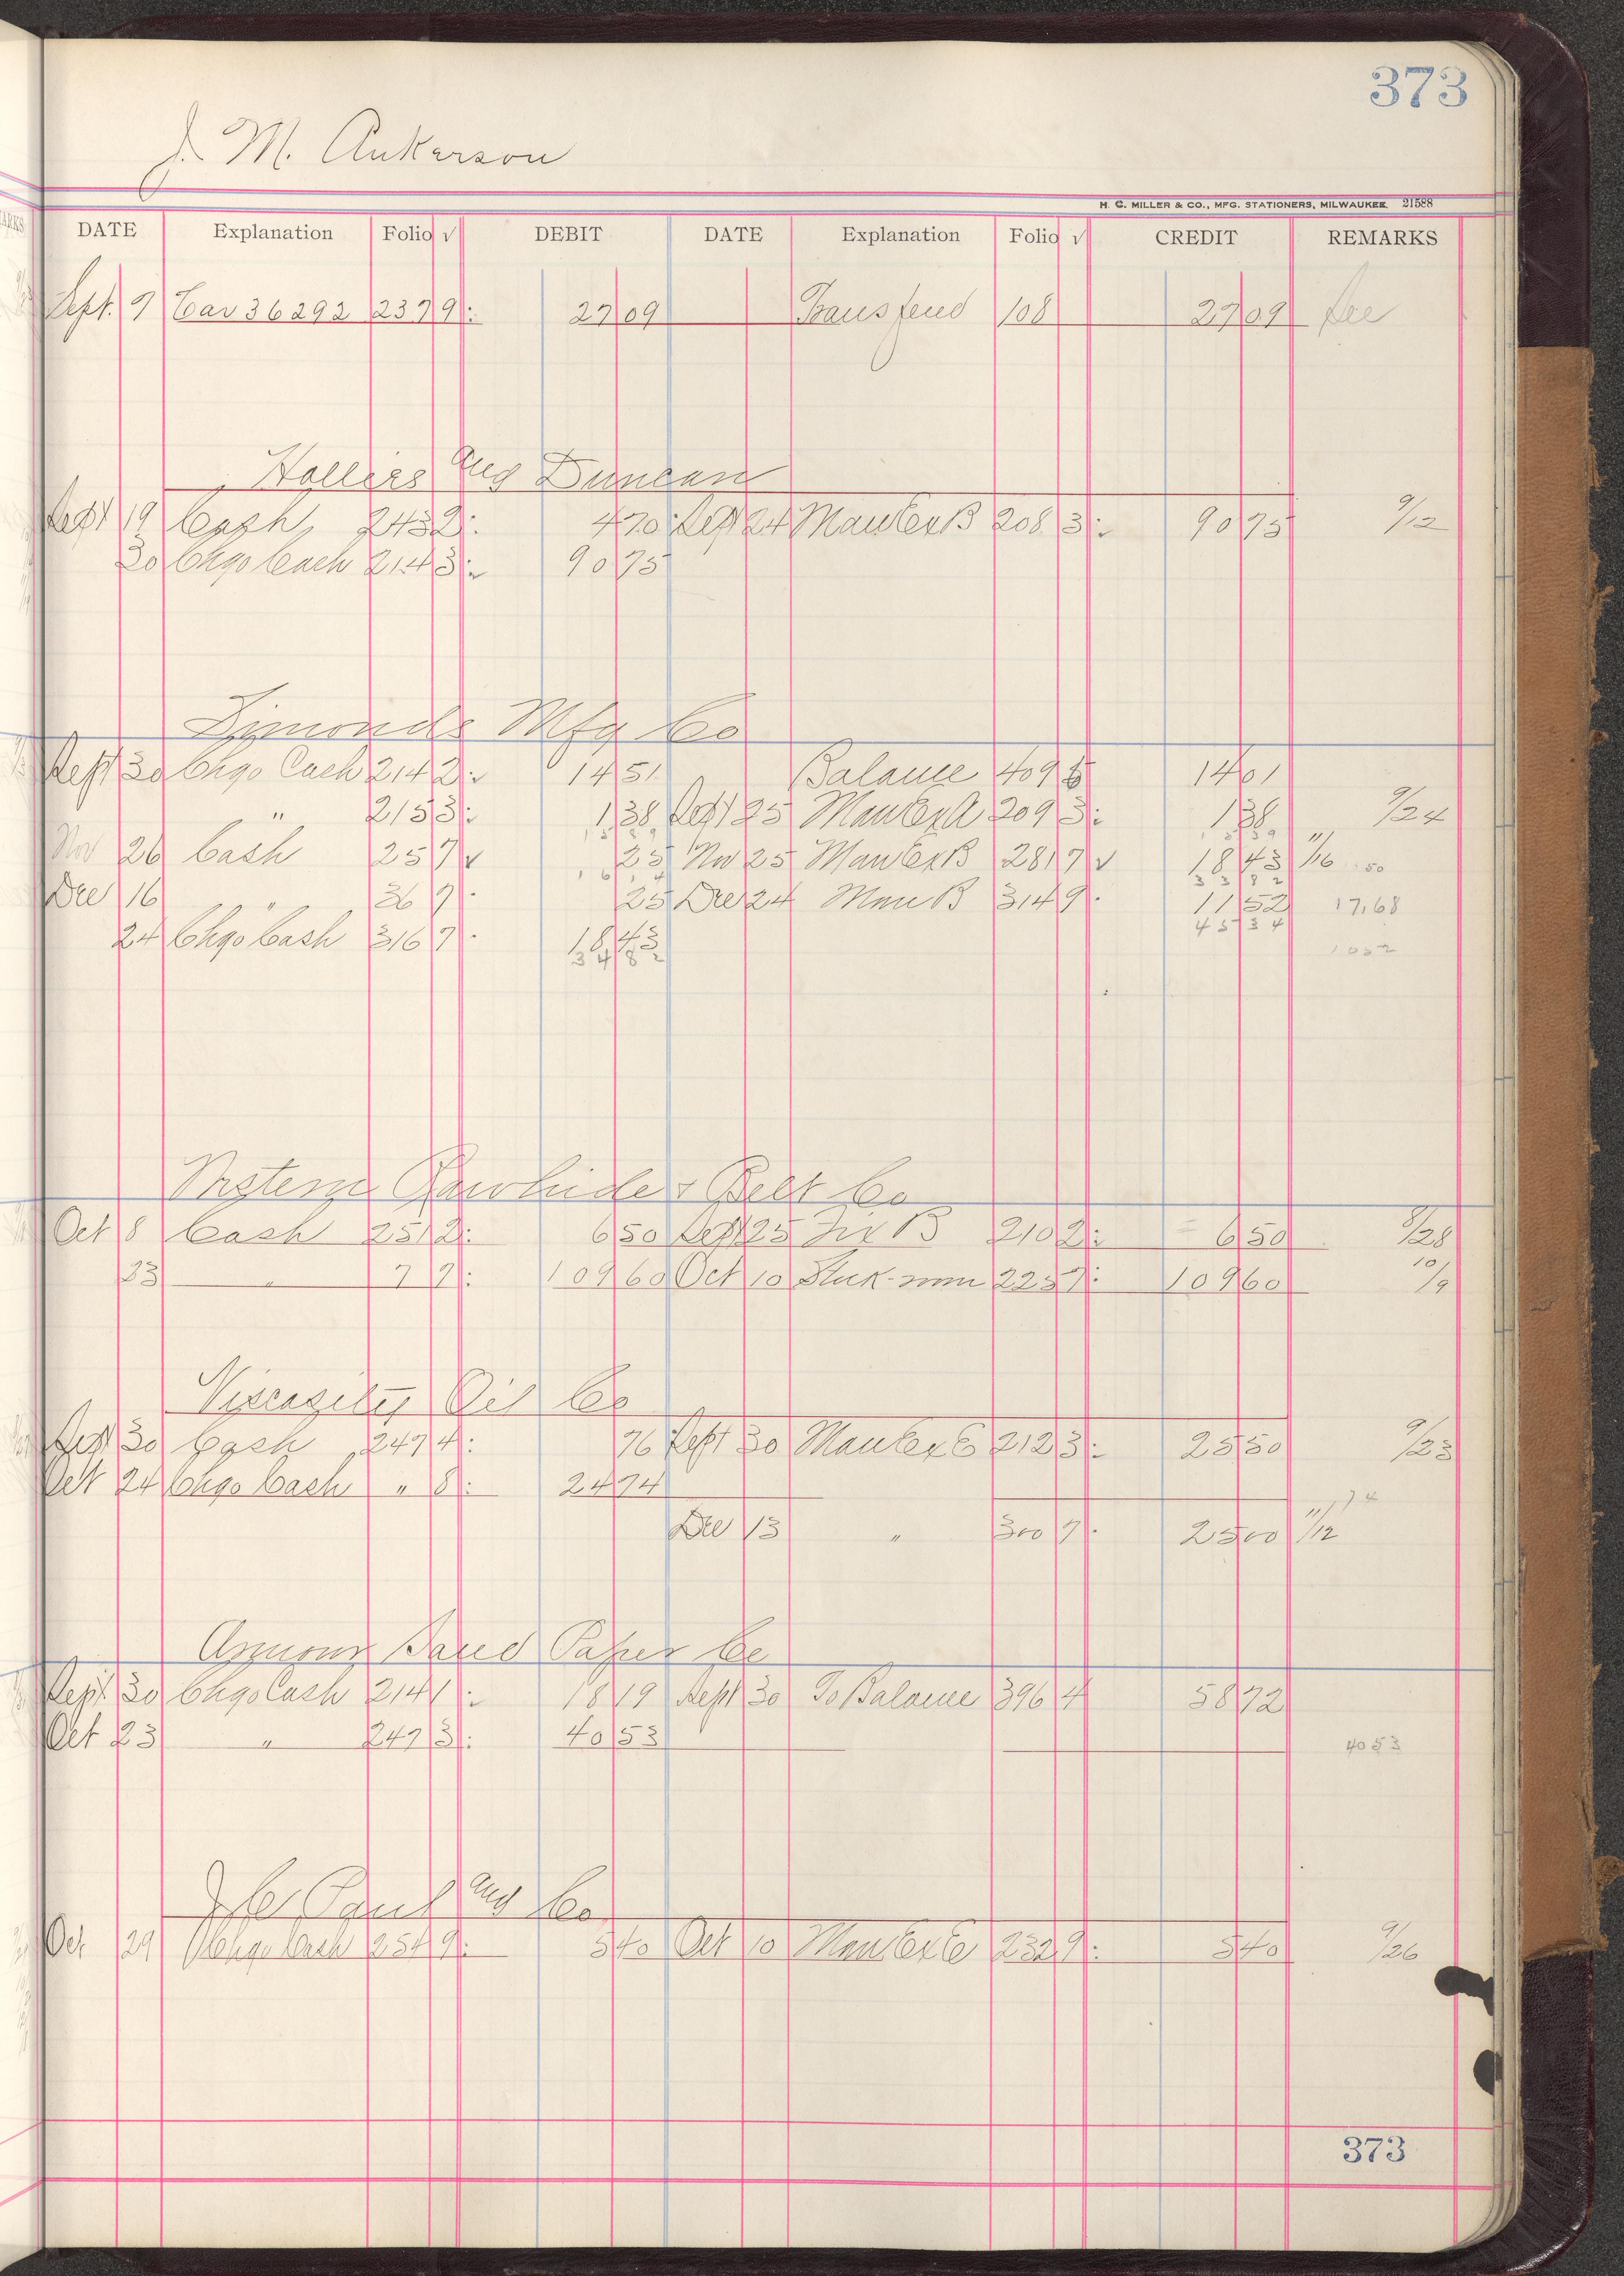 373
J. M. Ankerson
H. C. MILLER & CO., MFG. STATIONERS, MILWAUKEE 21588
DATE Explanation Folio √ DEBIT DATE Explanation Folio √ CREDIT REMARKS
Sept. 7 Car 36292 237 9: 27 09 Transferd 108 27 09
Holliers and Duncan
Sept 19 Cash 243 2: 4 70 Sept 24 ManExB 208 3: 90 75 9/12
30 Chgo Cash 214 3: 90 75
Simonds Mfg Co
Sept 30 Chgo Cash 214 2: 14 51 Balance 409 14 01
" 215 3: 1 38 Sept 25 ManExA 209 3: 1 38 9/24
15 89 15 39
Nov 26 Cash 25 7 √ 25 Nov 25 ManExB 281 7 √ 18 43 11/16 50
16 14 33 82
Dec 16 " 36 7 25 Dec 24 Man B 314 9 11 52 17,68
45 34
24 Chgo Cash 316 7 18 43
34 82
Western Rawhide & Belt Co
Oct 8 Cash 251 2: 6 50 Sept 25 Fix B 210 2: 6 50 8/28
23 " 7 7: 109 60 Oct 10 Stock-mm 225 7: 109 60 10/9
Viscosity Oil Co
Sept 30 Cash 247 4: 76 Sept 30 ManExE 212 3: 25 50 9/23
Oct 24 Chgo Cash " 8: 24 74
74
Dec 13 " 300 7 25 00 11/12
Armour Sand Paper Co
Sept 30 Chgo Cash 214 1: 18 19 Sept 30 To Balance 396 4 58 72
Oct 23 " 247 3: 40 53 40 53
J C Paul and Co
Oct 29 Chgo Cash 254 9: 5 40 Oct 10 ManExE 232 9: 5 40 9/26
373